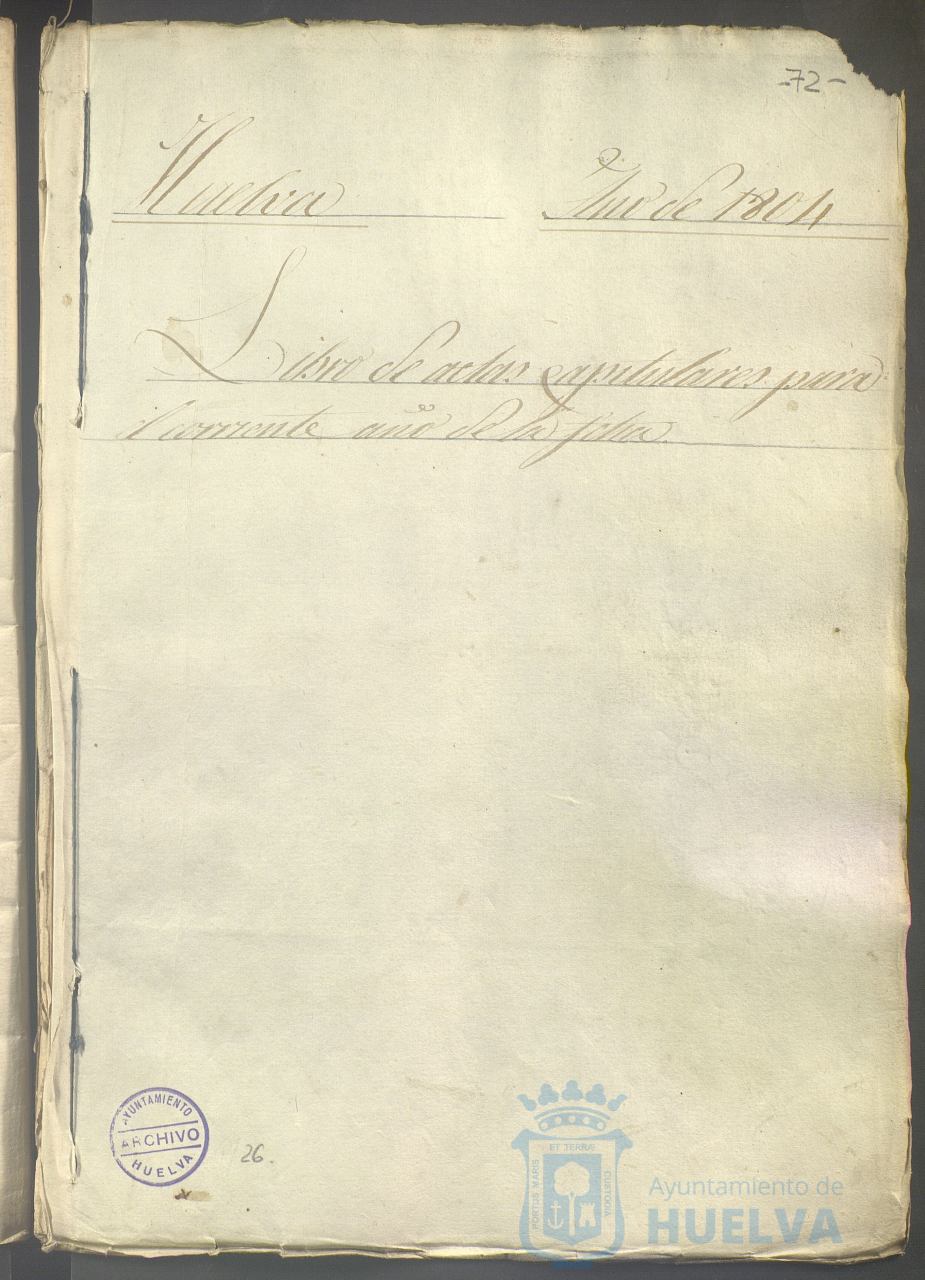 -72-
Huelva Año de 1804
Libro de actas capitulares para
el corriente año de la fcha.
AYUNTAMIENTO
ARCHIVO
HUELVA
26.
ET TERRÆ
PORTUS MARIS
CUSTODIA
Ayuntamiento de
HUELVA